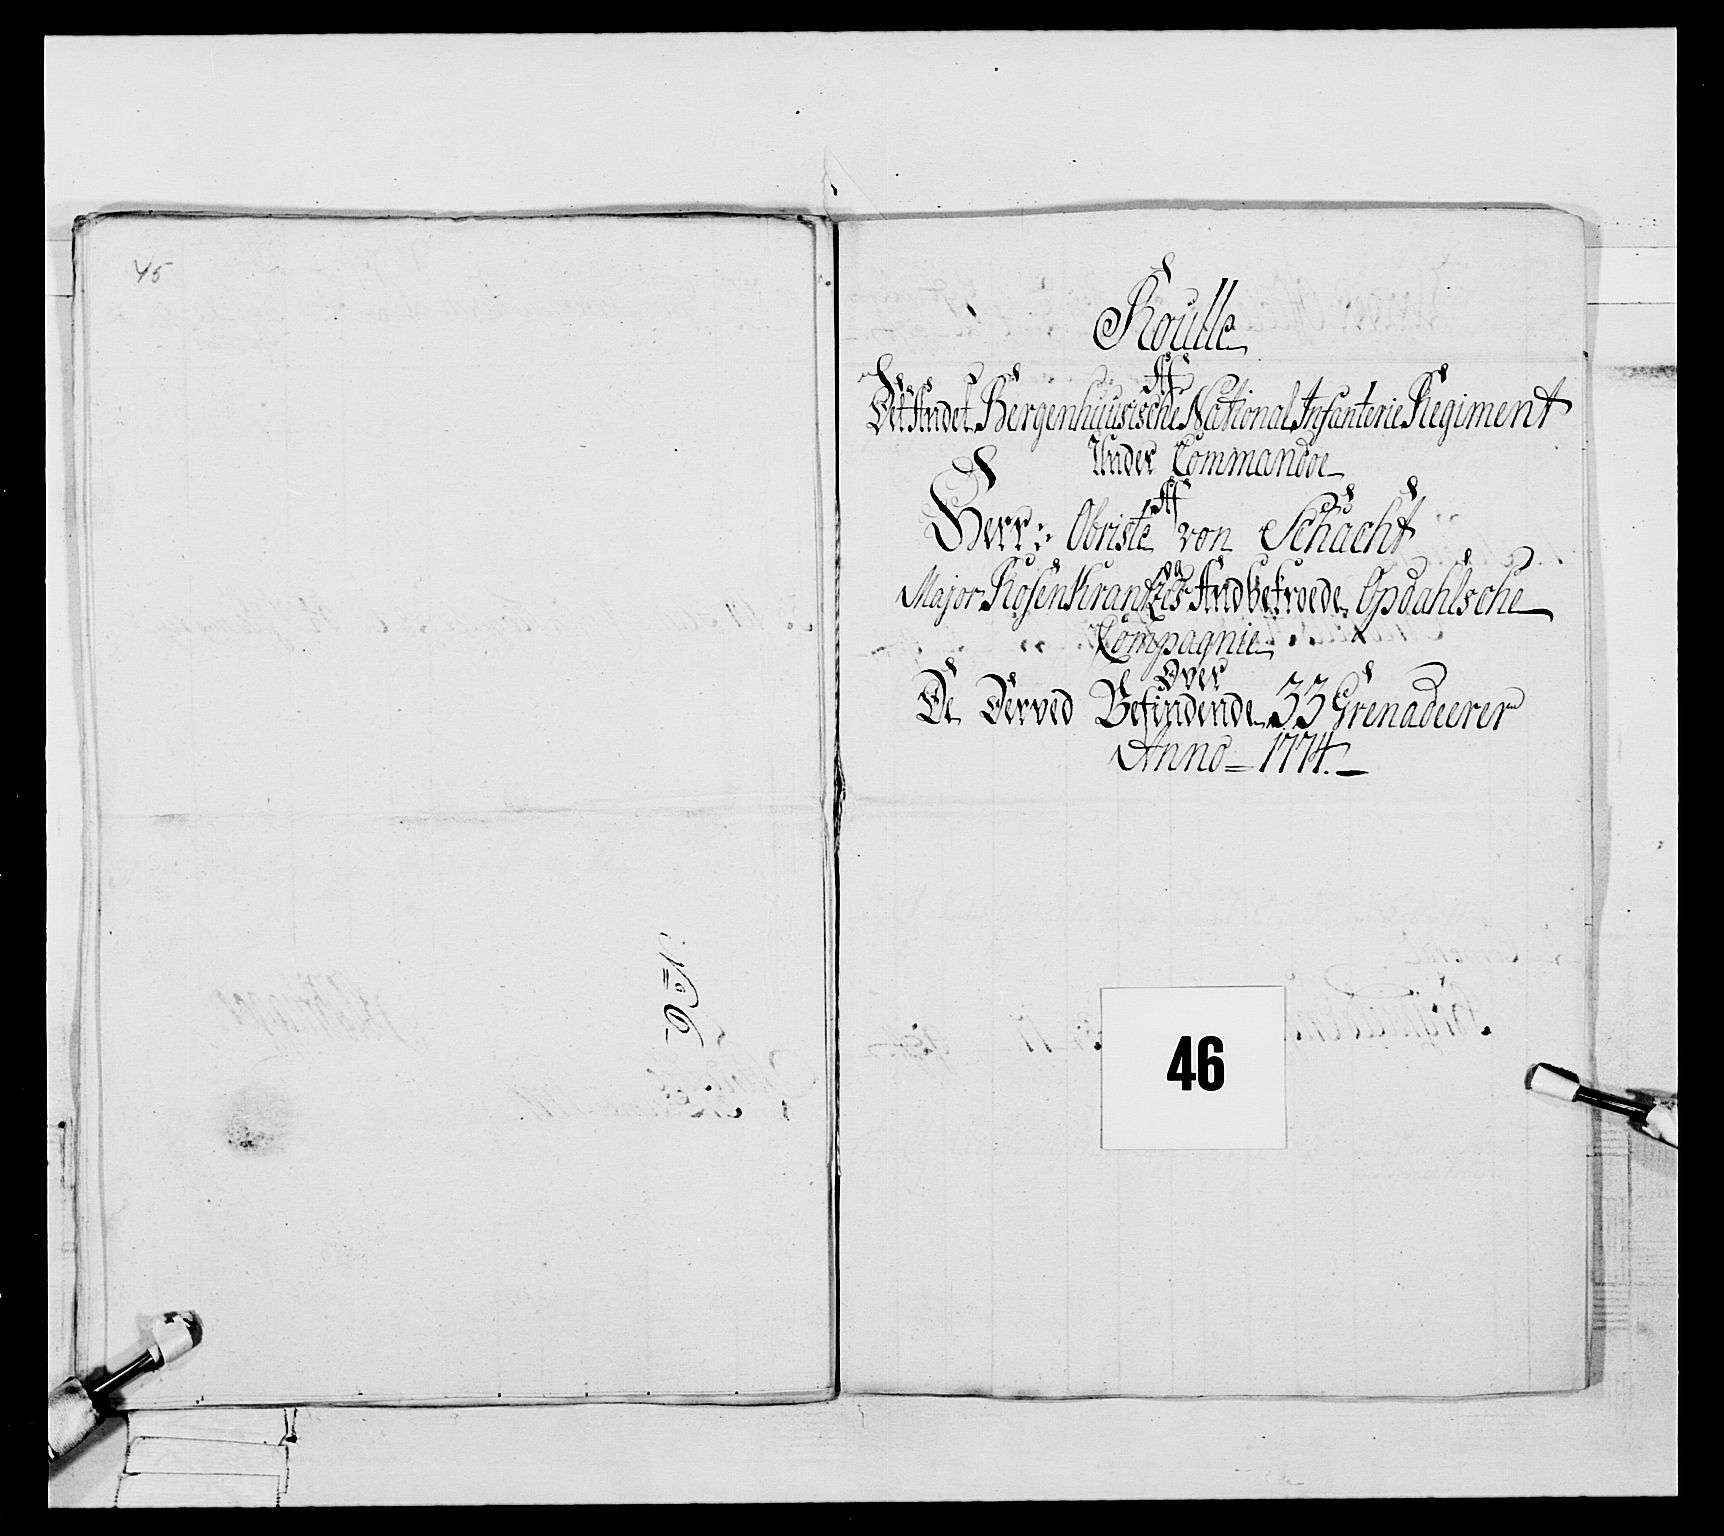 45
No 6
Roulle
Af
Det Andet Bergenhuusische National Infanterie Regiment
Under Commandoe
Af
Herr: Obriste von Schacht
og
Major Rosenkrantzes Andbetroede Opdahlsche
Compagnie
Over
De Derved Befindende 33 Grenadeerer
Anno 1774.
46